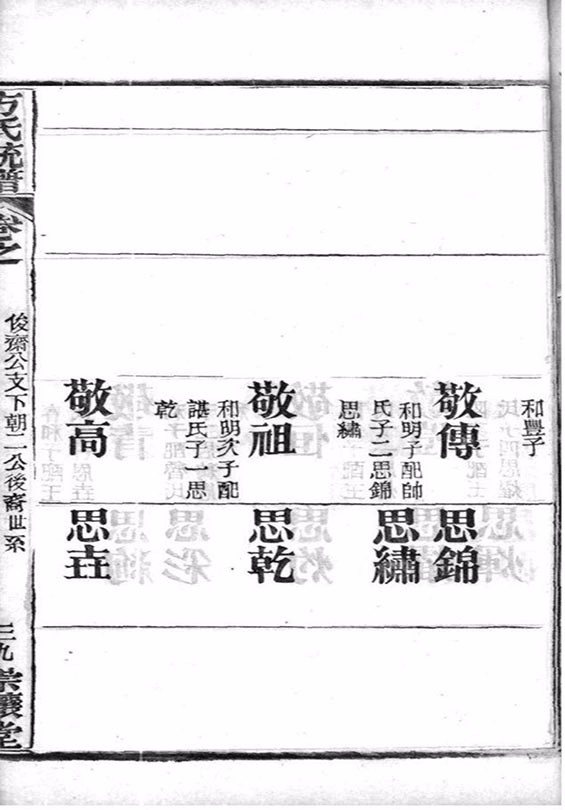 和豐子
敬傳
和明子配帥
氏子二思錦
思繡
敬祖
和明次子配
諶氏子一思
乾
敬高
思錦
思繡
思乾
思垚
方氏統譜
卷之
俊齋公支下朝二公後裔世系
三九
堂